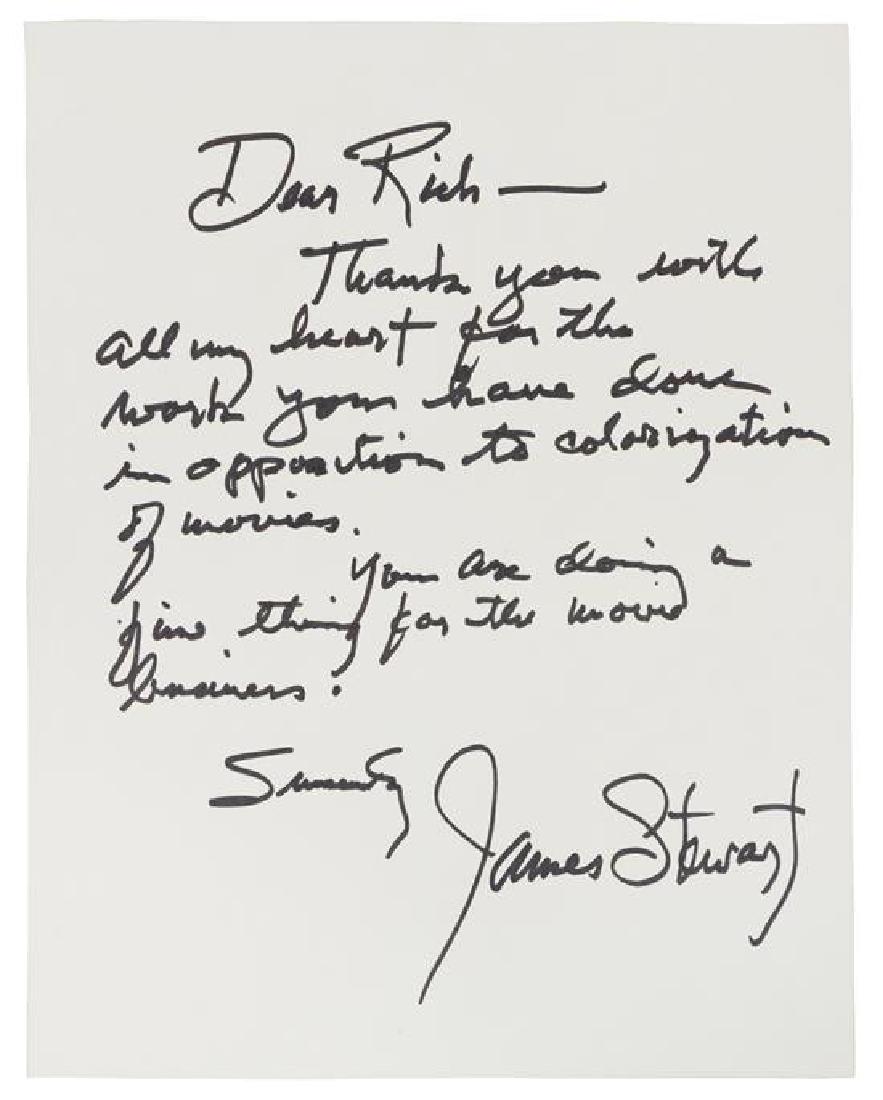 Dear Rich —
Thank you with
all my heart for the
work you have done
in opposition to colorization
of movies.
You are doing a
fine thing for the movie
business.
Sincerely
James Stewart